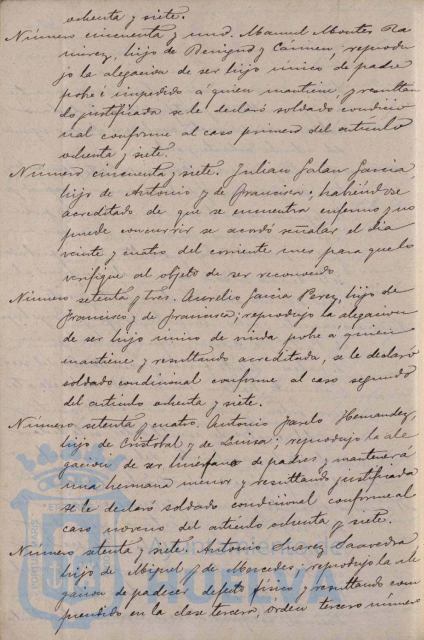 ochenta y siete.
Número cincuenta y uno. Manuel Montes Ra
mirez, hijo de Benigno y Cármen, reprodu-
jo la alegacion de ser hijo único de padre
pobre é impedido á quien mantiene, y resultan
do justificada se le declaró soldado condicio
nal conforme al caso primero del artículo
ochenta y siete.
Número cincuenta y siete. Julian Galan Garcia,
hijo de Antonio y de Francisca; habiéndose
acreditado de que se encuentra enfermo y no
puede concurrir se acordó señalar el dia
veinte y cuatro del corriente mes para que lo
verifique al objeto de ser reconocido.
Número setenta y tres. Aurelio Garcia Perez, hijo de
Francisco y de Francisca; reprodujo la alegacion
de ser hijo único de viuda pobre á quien
mantiene y resultando acreditada, se le declaró
soldado condicional conforme al caso segundo
del artículo ochenta y siete.
Número setenta y cuatro. Antonio Hernandez,
hijo de Cristobal y de Luisa; reprodujo la ale
gacion de ser huérfano de padres y mantener á
una hermana menor y resultando justificada
se le declaró soldado condicional conforme al
caso noveno del artículo ochenta y siete.
Número setenta y siete. Antonio Suarez Saavedra
hijo de Miguel y de Mercedes; reprodujo la ale
gacion de padecer defecto físico y resultando com
prendido en la clase tercera, orden tercero número
Ayuntamiento de
HUELVA